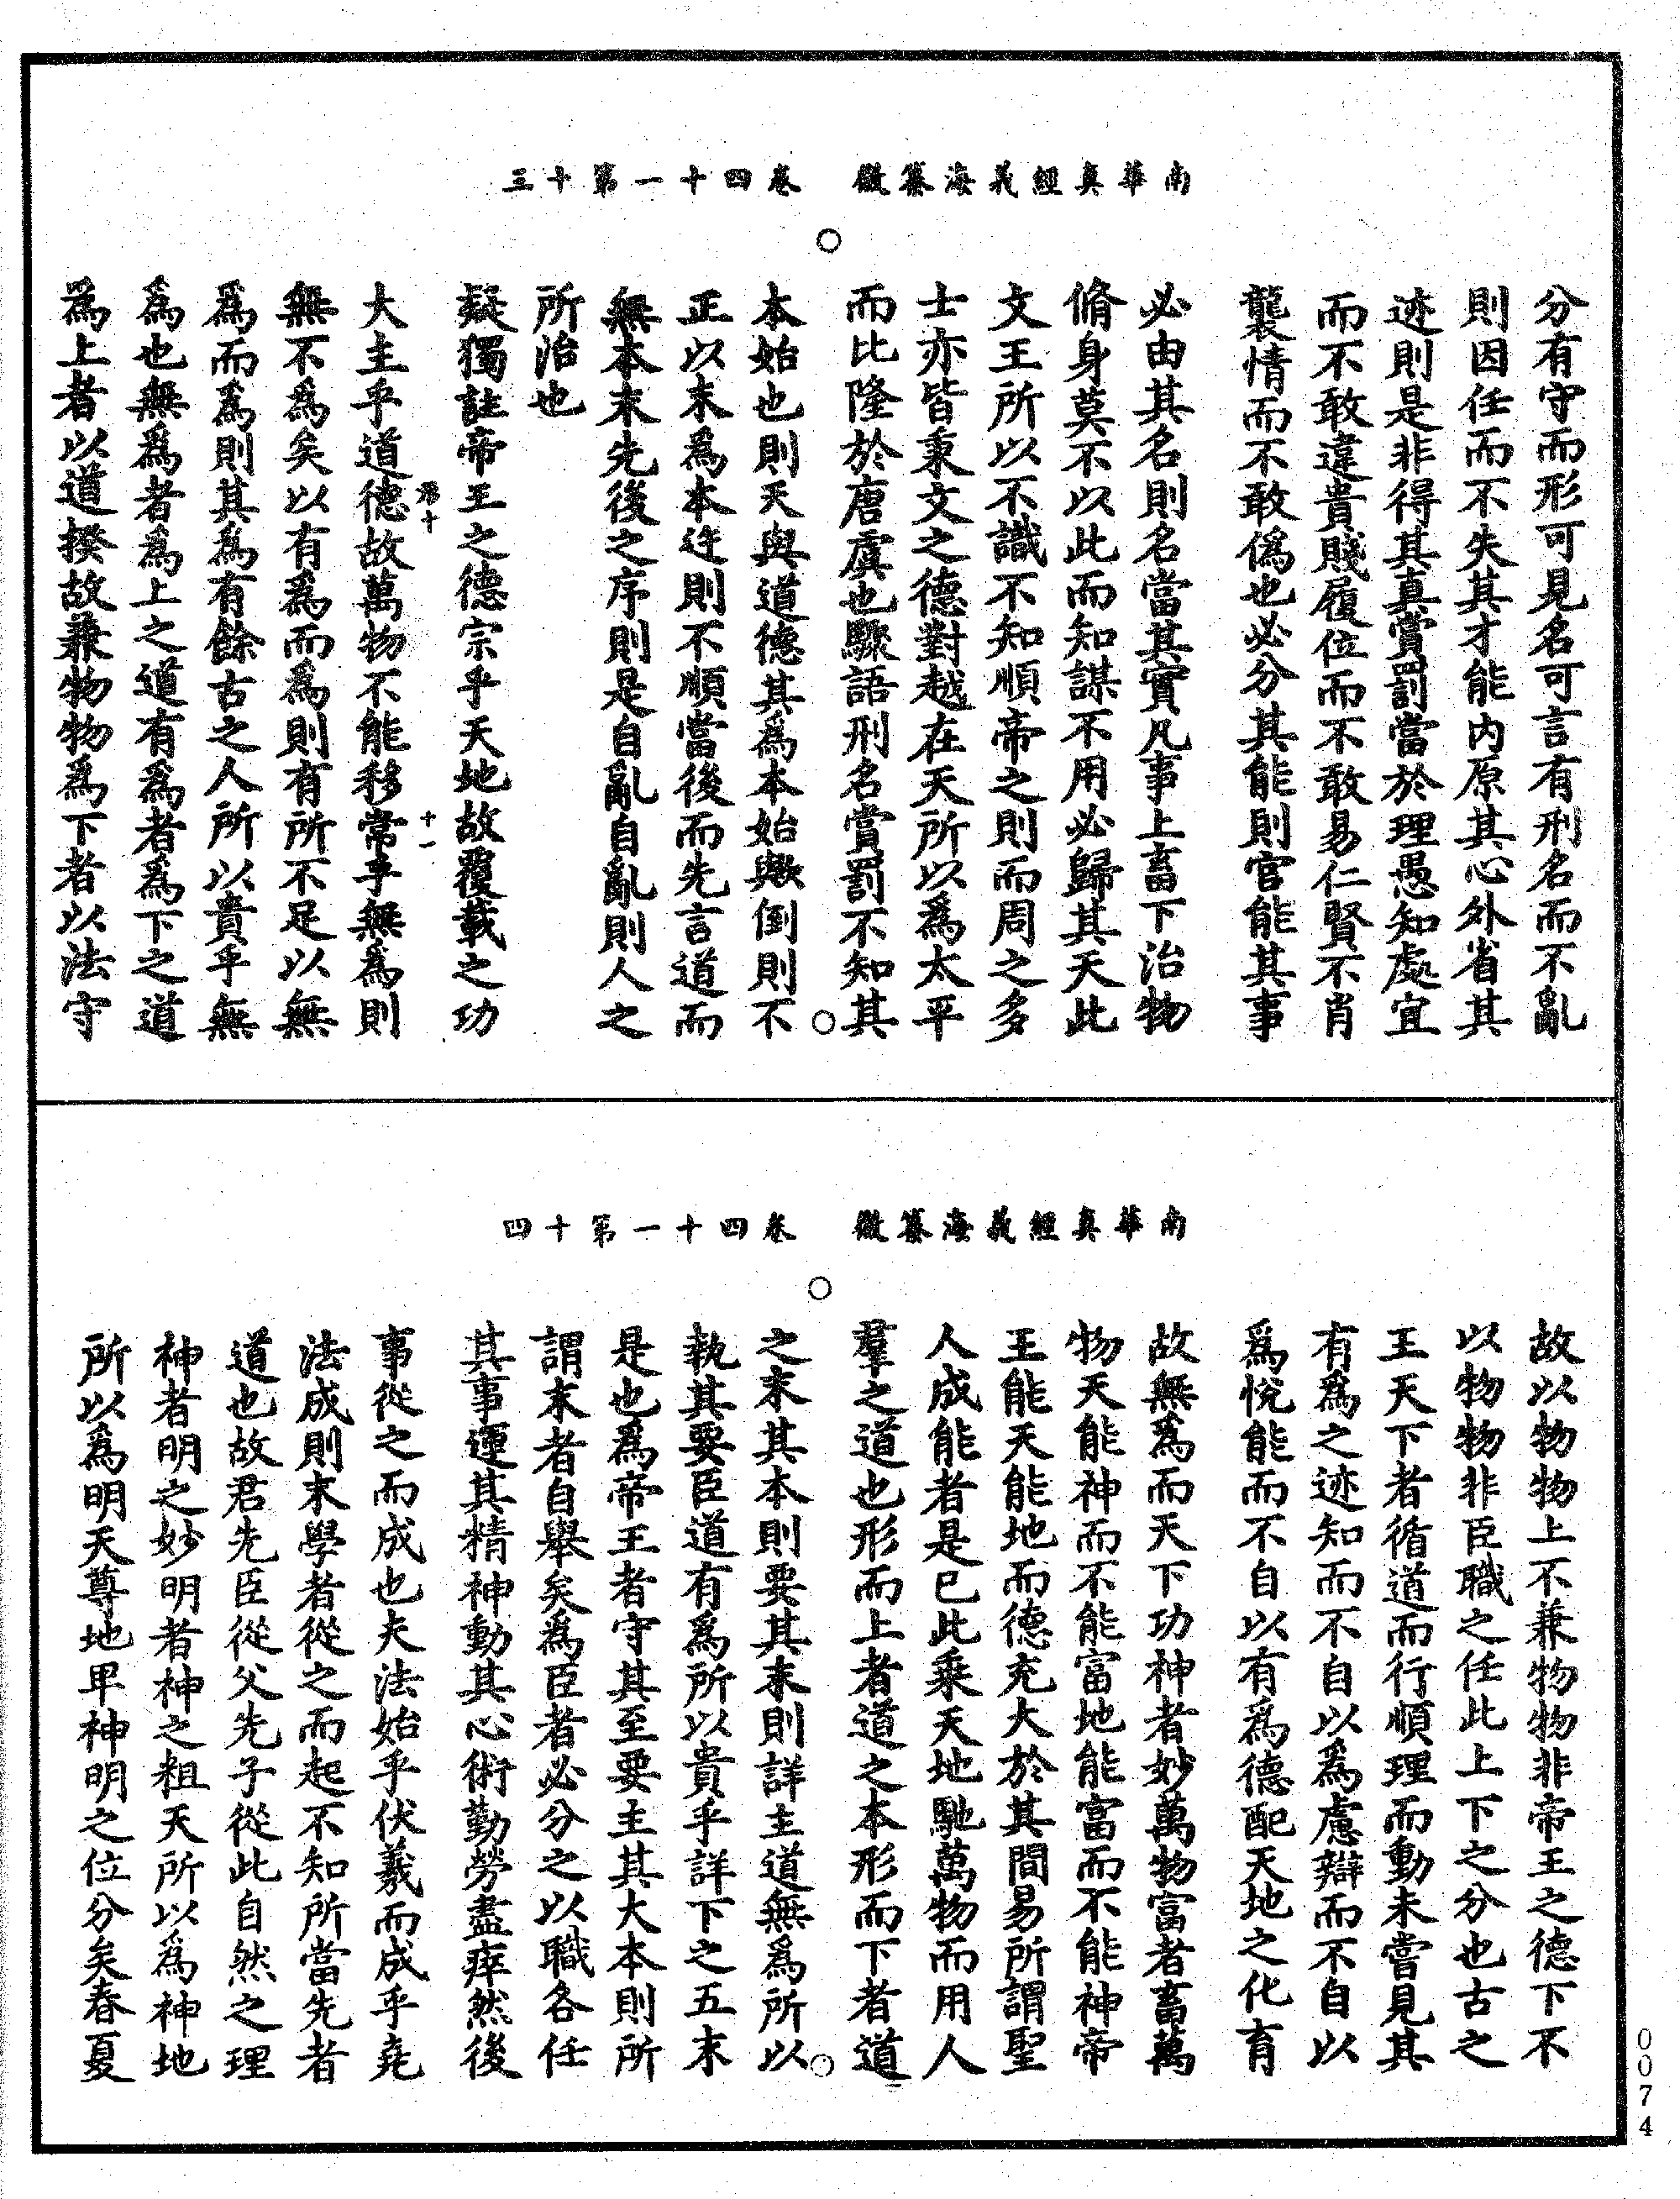 南華真經義海纂微　卷四十一第十三
分有守而形可見名可言有刑名而不亂
則因任而不失其才能内原其心外省其
迹則是非得其真賞罰當於理愚知處宜
而不敢違貴賤履位而不敢易仁賢不肖
襲情而不敢僞也必分其能則官能其事
必由其名則名當其實凡事上畜下治物
脩身莫不以此而知謀不用必歸其天此
文王所以不識不知順帝之則而周之多
士亦皆秉文之德對越在天所以爲太平
而比隆於唐虞也驟語刑名賞罰不知其
本始也則天與道德其爲本始歟倒則不
正以末爲本迕則不順當後而先言道而
無本末先後之序則是自亂自亂則人之
所治也
疑獨註帝王之德宗乎天地故覆載之功
大主乎道德故萬物不能移常乎無爲則
無不爲矣以有爲而爲則有所不足以無
爲而爲則其爲有餘古之人所以貴乎無
爲也無爲者爲上之道有爲者爲下之道
爲上者以道揆故兼物物爲下者以法守
十
十一
南華真經義海纂微　卷四十一第十四
故以物物上不兼物物非帝王之德下不
以物物非臣職之任此上下之分也古之
王天下者循道而行順理而動未嘗見其
有爲之迹知而不自以爲慮辯而不自以
爲悅能而不自以有爲德配天地之化育
故無爲而天下功神者妙萬物富者畜萬
物天能神而不能富地能富而不能神帝
王能天能地而德充大於其間易所謂聖
人成能者是已此乘天地馳萬物而用人
羣之道也形而上者道之本形而下者道
之末其本則要其末則詳主道無爲所以
執其要臣道有爲所以貴乎詳下之五末
是也爲帝王者守其至要主其大本則所
謂末者自舉矣爲臣者必分之以職各任
其事運其精神動其心術勤勞盡瘁然後
事從之而成也夫法始乎伏羲而成乎堯
法成則末學者從之而起不知所當先者
道也故君先臣從父先子從此自然之理
神者明之妙明者神之粗天所以爲神地
所以爲明天尊地卑神明之位分矣春夏
0074